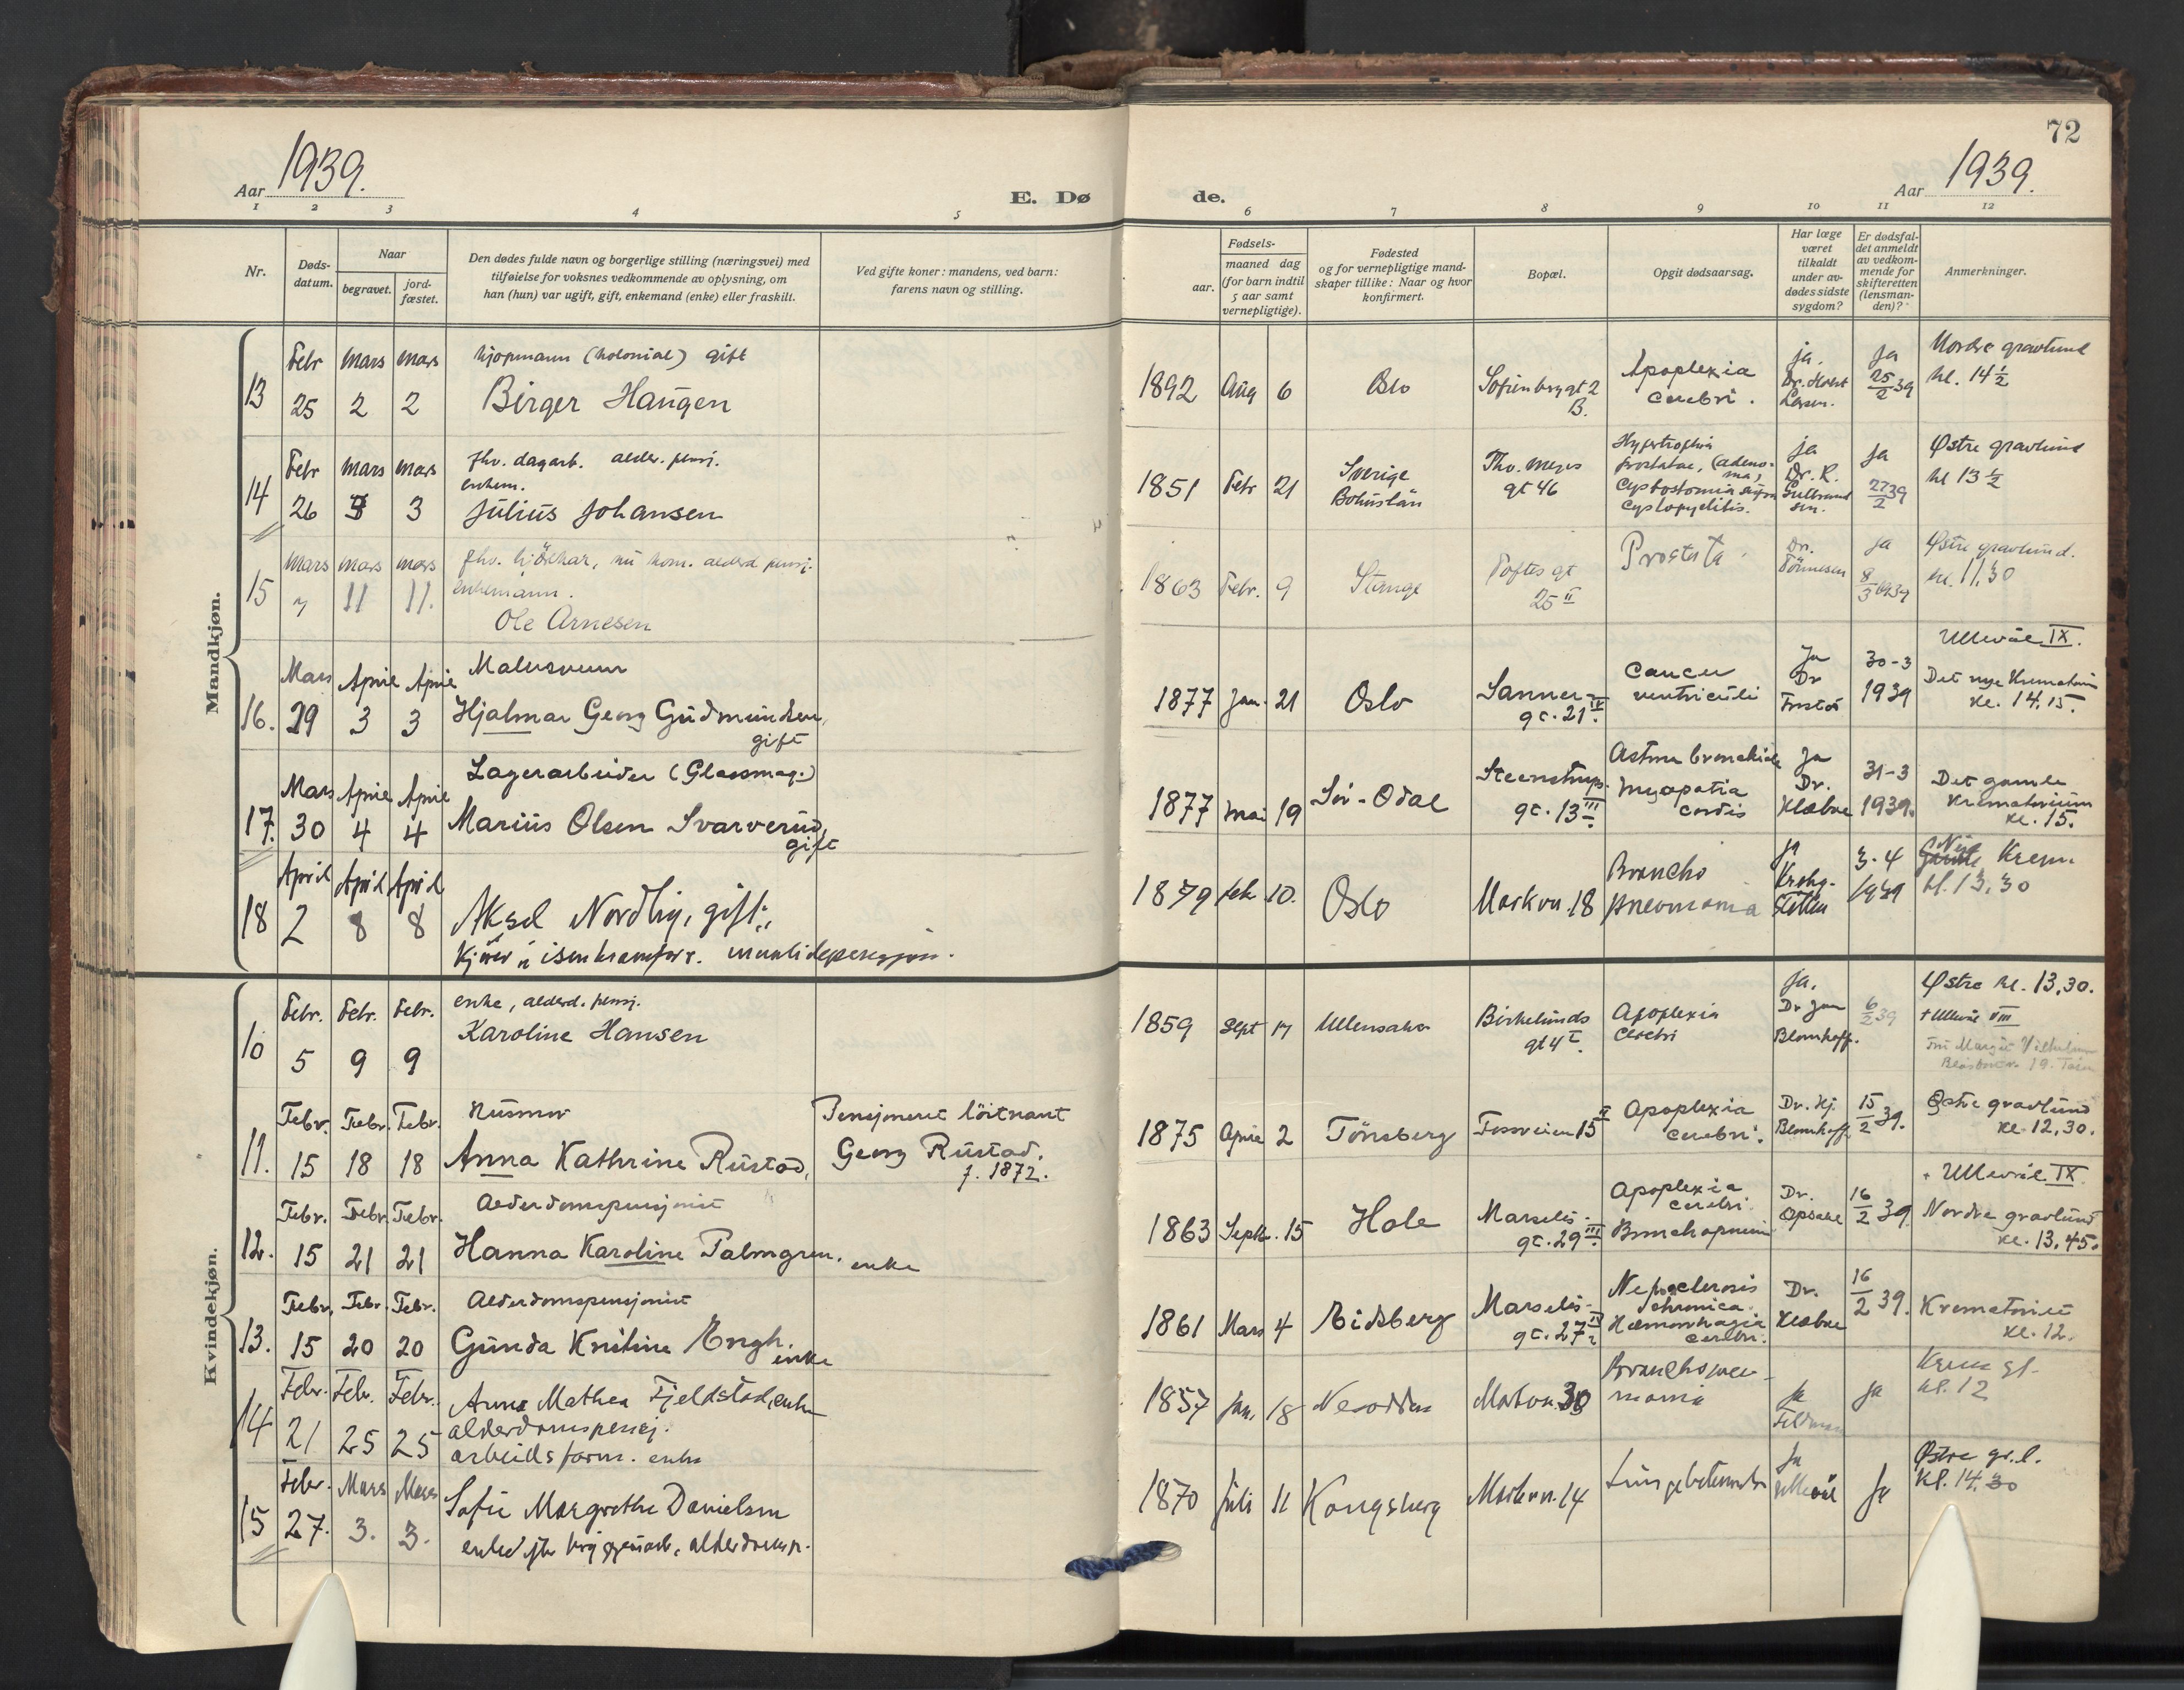 72
Aar 1939.
E. Døde.
Aar 1939.
1 2 3 4 5 6 7 8 9 10 11 12
Nr.
Døds-
datum.
Naar
begravet.
jord-
fæstet.
Den dødes fulde navn og borgerlige stilling (næringsvei) med
tilføielse for voksnes vedkommende av oplysning, om
han (hun) var ugift, gift, enkemand (enke) eller fraskilt.
Ved gifte koner: mandens, ved barn:
farens navn og stilling.
Fødsels-
aar.
maaned dag
(for barn indtil
5 aar samt
vernepligtige).
Fødested
og for vernepligtige mand-
skaper tillike: Naar og hvor
konfirmert.
Bopæl.
Opgit dødsaarsag.
Har læge
været
tilkaldt
under av-
dødes sidste
sygdom?
Er dødsfal-
det anmeldt
av vedkom-
mende for
skifteretten
(lensman-
den)?
Anmerkninger.
Mandkjøn.
13
Febr 25
Mars 2
Mars 2
kjøpmann (kolonial) gift
Birger Haugen
1892 Aug 6
Oslo
Sofienbrggt 2
B.
Apoplexia
cerebri.
ja.
Dr.
Larsen.
Ja
25/2 39
Nordre gravlund
kl. 14 1/2
14
Febr 26
Mars 3
Mars 3
fhv. dagarb. alder. pensj.
enkem.
Julius Johansen
1851 Febr 21
Sverige
Bohuslän
Thv. Meyers
gt 46
Hypertrophia
prostatae, (adeno-
ma)
Cystopyelitis.
ja
Dr. R.
Gulbrand
sen.
Ja
27/2 39
Østre gravlund
kl 13 1/2
15
Mars 7
Mars 11
Mars 11.
fhv. kom. alderd pensj.
enkemann.
Ole Arnesen
1863 Febr. 9
Stange
Toftes gt
25 II
Prostata
Dr.
Tönnesen
Ja
8/3 1939
Østre gravlund.
kl. 11,30
16.
Mars 29
April 3
April 3
Malersvenn
Hjalmar Georg Gudmundsen,
gift
1877 Jan. 21
Oslo
Sanner-
gt. 21 IV.
Cancer
ventriculi
Ja
Dr
30-3
1939
Ullevål IX.
Det nye Krematorium
kl. 14.15.
17.
Mars 30
April 4
April 4
Lagerarbeider (Glassmag.)
Marius Olsen Svarverud,
gift
1877 Mai 19
Sør-Odal
Steenstrups
gt. 13 III.
Astma bronchiale
Myopatia
cordis
Ja
Dr.
Klæboe
31-3
1939.
Det gamle
krematorium
kl. 15.
18
April 2
April 8
April 8
Aksel Nordlig, gift;
1879 feb. 10.
Oslo
Markvn. 18
Broncho
pneumonia
Ja
3-4
1939
Nye Krem
kl. 13,30
Kvindekjøn.
10
Febr. 5
Febr. 9
Febr. 9
enke, alderd. pensj.
Karoline Hansen
1859 Sept 17
Ullensaker
Birkelunds
gt 4 I.
Apoplexia
cerebri
Ja.
Dr Jan
Blomhoff.
6/2 39
Østre kl. 13,30.
+ Ullevål VIII
11.
Febr. 15
Febr. 18
Febr. 18
Husmor
Anna Kathrine Rustad,
Pensjonert löitnant
Georg Rustad.
f. 1872.
1875 April 2
Tönsberg
Fossveien 15 II
Apoplexia
cerebri.
Dr. Hj.
Blomhoff
15/2 39.
Østre gravlund
kl. 12,30.
12.
Febr. 15
Febr. 21
Febr. 21
Alderdomspensjonist
Hanna Karoline Palmgren.
enke
1863 Septbr. 15
Hole
Marselis-
gt. 29 III.
Apoplexia
cerebri.
Bronchopneumoni
Dr.
Opsahl
16/2 39
+ Ullevål IX.
Nordre gravlund
kl. 13,45.
13.
Febr. 15
Febr. 20
Febr. 20
Alderdomspensjonist
Gunda Kristine Engh.
enke
1861 Mars 4
Eidsberg
Marselis-
gt. 27 IV
chronica.
Hæmorrhagia
cerebri.
Dr.
Klæboe
16/2 39.
Krematoriet
kl. 12.
14
Febr. 21
Febr. 25
Febr. 25
Anna Mathea Fjeldstad, enke
alderdomspensj.
arbeidsform. enke
1857 Jan. 18
Nesodden
Markvn. 30
Bronchopneu-
monia
Ja
ja
kl. 12
15
Febr. 27.
Mars 3.
Mars 3.
Sofie Margrethe Danielsen
enke efter bryggeriarb. alderdomsp.
1870 Juli 11
Kongsberg
Markvn. 14
Lungebetennelse
Ja
Ullevål
Ja
Østre gr. l.
Kl. 14.30